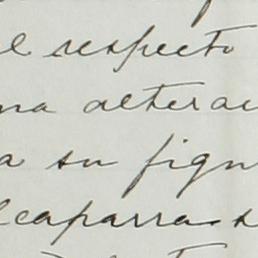 el respecto
na alterac
a su figur
lcaparra s